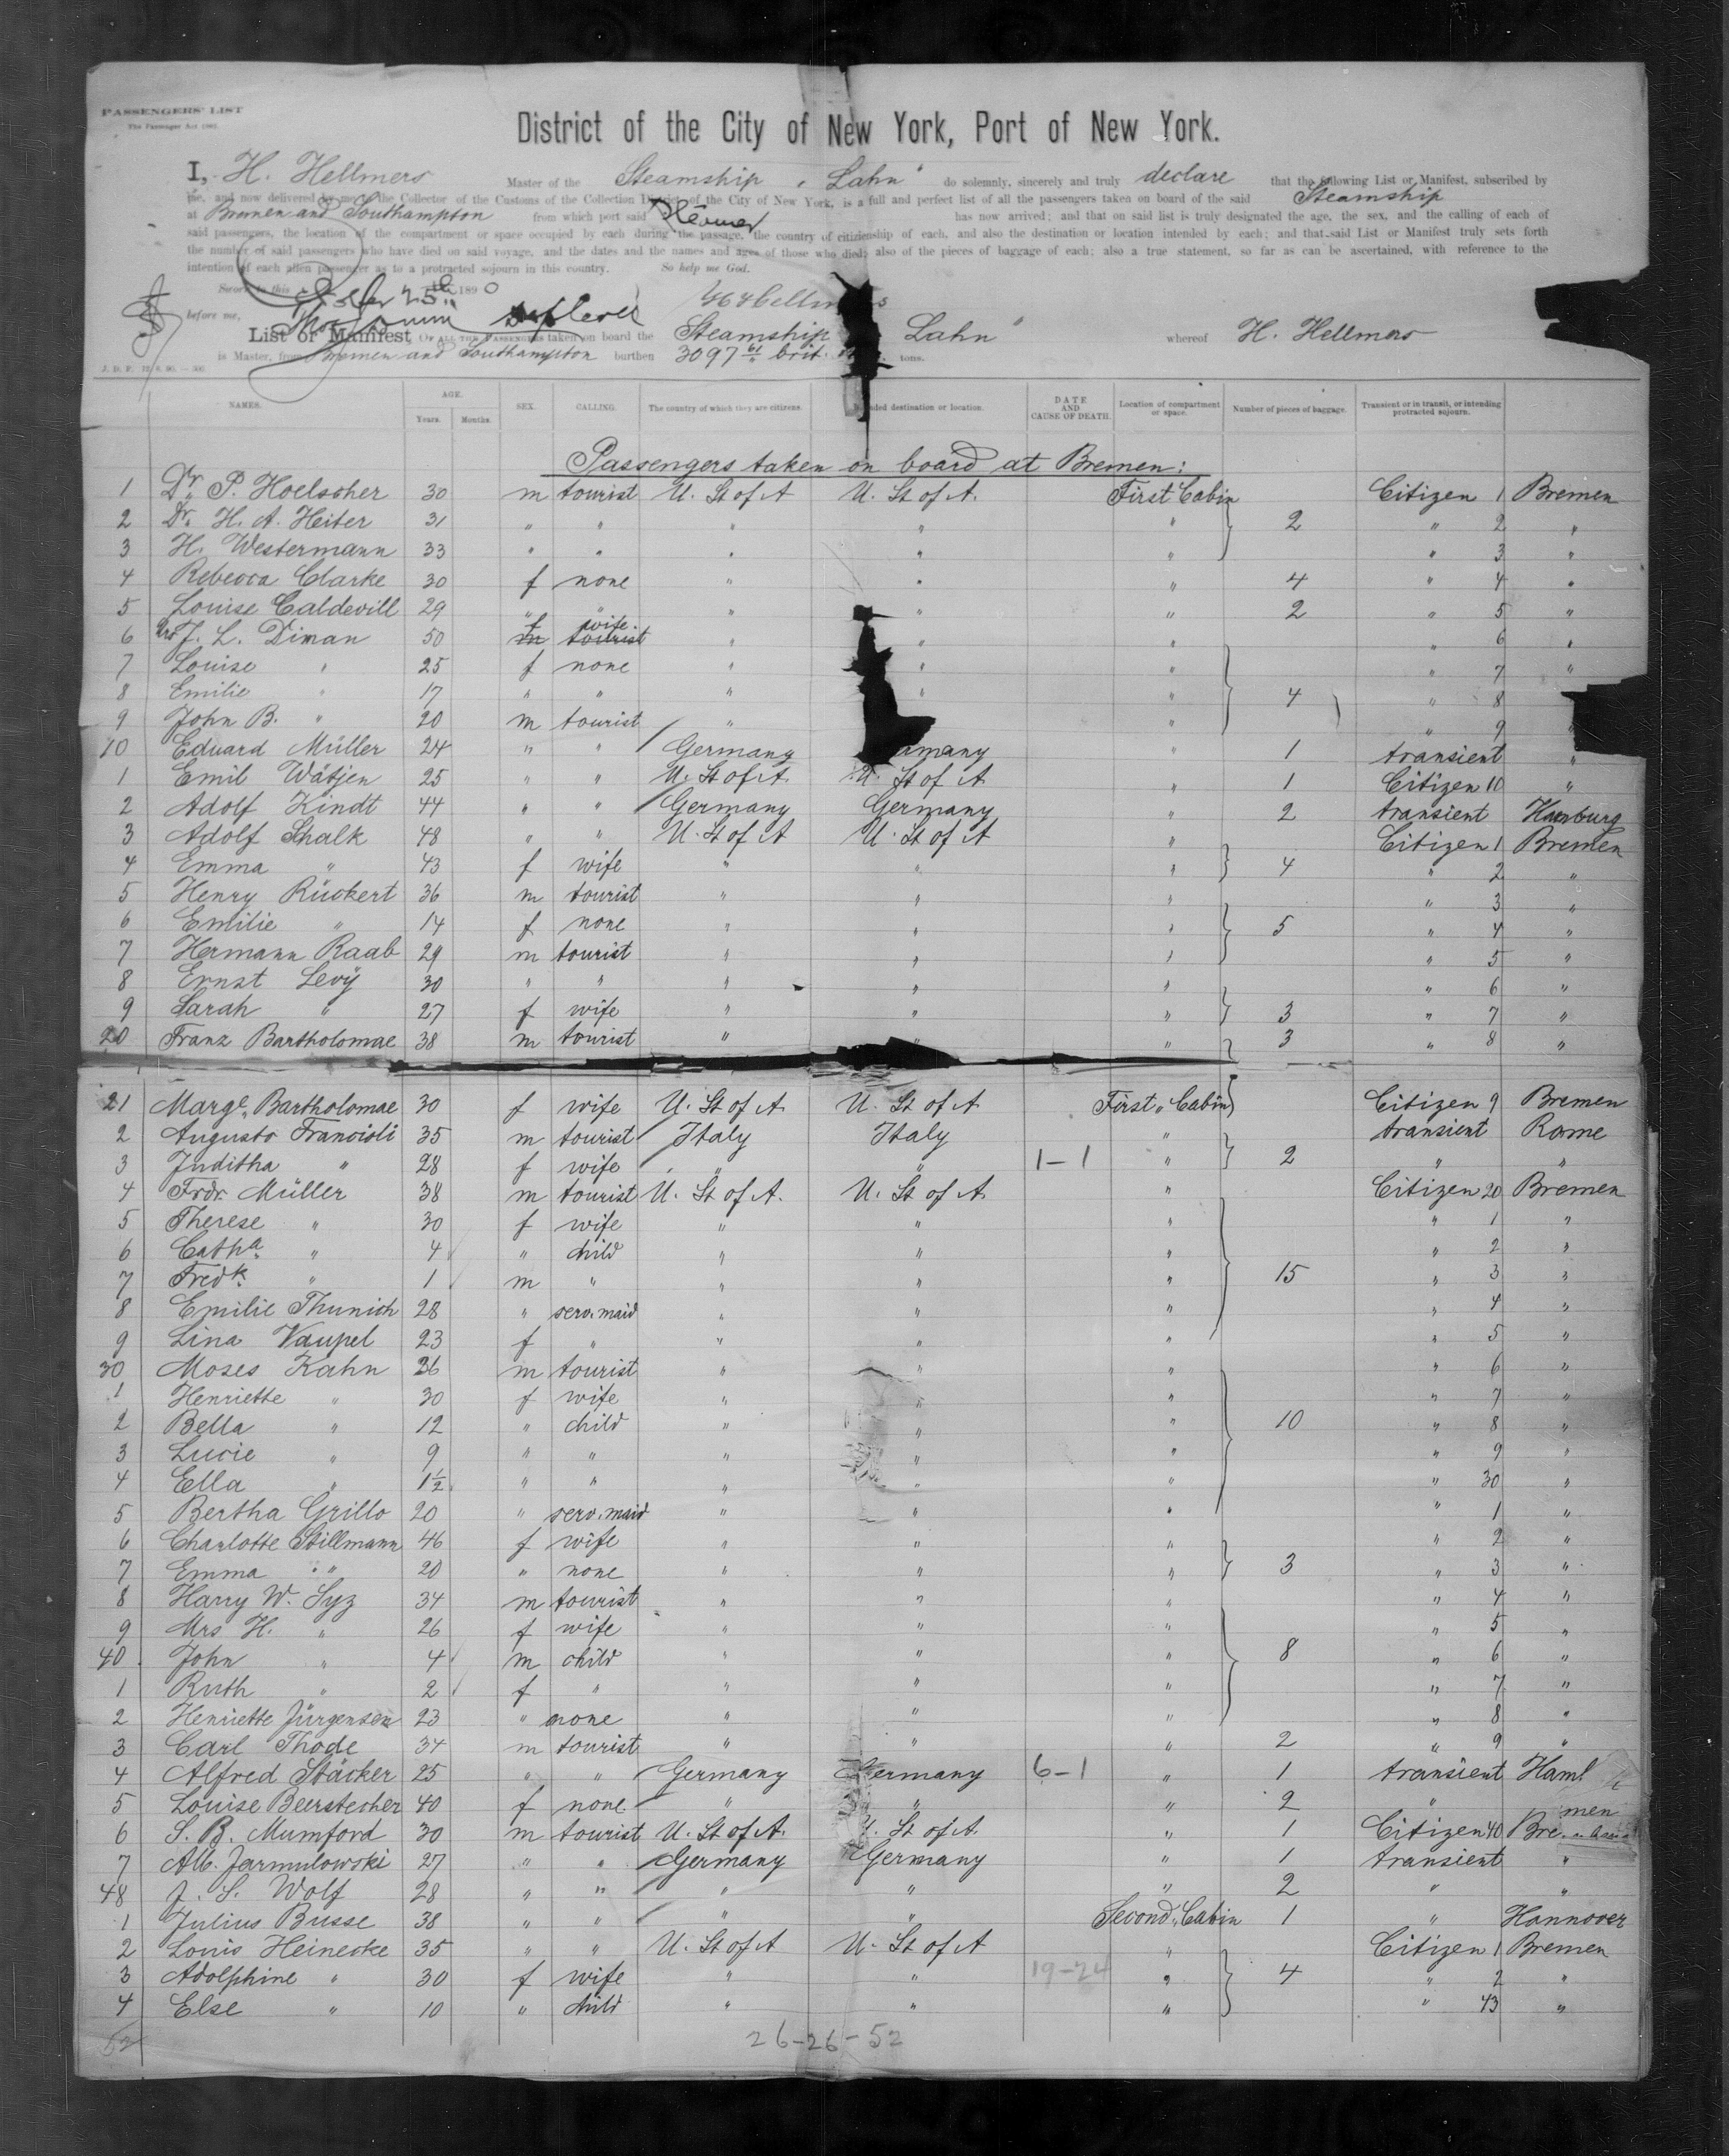 PASSENGERS' LIST
The Passenger Act 1882.
District of the City of New York, Port of New York.
I, H. Hellmers Master of the Steamship "Lahn" do solemnly, sincerely and truly declare that the following List or Manifest, subscribed by
me, and now delivered by me to the Collector of the Customs of the Collection District of the City of New York, is a full and perfect list of all the passengers taken on board of the said Steamship
at Bremen and Southampton from which port said Steamer has now arrived; and that on said list is truly designated the age, the sex, and the calling of each of
said passengers, the location of the compartment or space occupied by each during the passage, the country of citizenship of each, and also the destination or location intended by each; and that said List or Manifest truly sets forth
the number of said passengers who have died on said voyage, and the dates and the names and ages of those who died; also of the pieces of baggage of each; also a true statement, so far as can be ascertained, with reference to the
intention of each alien passenger as to a protracted sojourn in this country. So help me God.
Sworn to this 25th 1890
before me,
List or Manifest OF ALL THE PASSENGERS taken on board the Steamship Lahn" whereof H. Hellmers
is Master, from Bremen and Southampton burthen 3097 61 brit. tons.
NAMES. AGE. Years. Months. SEX. CALLING. The country of which they are citizens. Intended destination or location. DATE AND CAUSE OF DEATH. Location of compartment or space. Number of pieces of baggage. Transient or in transit, or intending protracted sojourn.
Passengers taken on board at Bremen:
1 Dr. P. Hoelscher 30 m tourist U. St of A U. St of A. First Cabin Citizen 1 Bremen
2 Dr. H. A. Heiter 31 " " " " " 2 " 2 "
3 H. Westermann 33 " " " " " " 3 "
4 Rebecca Clarke 30 f none " " " 4 " 4 "
5 Louise Caldevill 29 " " " " " 2 " 5 "
6 Mrs J. L. Diman 50 f wife m tourist " " " " 6 "
7 Louise " 25 f none " " " " 7 "
8 Emilie " 17 " " " " " 4 " 8
9 John B. " 20 m tourist " " " 9 "
10 Eduard Müller 24 " " Germany many " 1 transient "
1 Emil Wätjen 25 " " U. St of A U. St of A " 1 Citizen 10 "
2 Adolf Kindt 44 " " Germany Germany " 2 transient Hamburg
3 Adolf Schalk 48 " " U. St of A U. St of A " Citizen 1 Bremen
4 Emma " 43 f wife " " " 4 " 2 "
5 Henry Rückert 36 m tourist " " " " 3 "
6 Emilie " 14 f none " " " 5 " 4 "
7 Hermann Raab 29 m tourist " " " " 5 "
8 Ernst Levÿ 30 " " " " " " 6 "
9 Sarah " 27 f wife " " " 3 " 7 "
20 Franz Bartholomae 38 m tourist " " " 3 " 8 "
21 Marge. Bartholomae 30 f wife U. St of A U. St of A First " Cabin Citizen 9 Bremen
2 Augusto Francioli 35 m tourist Italy Italy " transient Rome
3 Juditha " 28 f wife " " 1-1 " 2 " "
4 Frdr. Müller 38 m tourist U. St of A. U. St of A. " Citizen 20 Bremen
5 Therese " 30 f wife " " " " 1 "
6 Catha. " 4 " child " " " " 2 "
7 Fredk. " 1 m " " " " 15 " 3 "
8 Emilie Thunich 28 " serv. maid " " " " 4 "
9 Lina Vaupel 23 f " " " " " 5 "
30 Moses Kahn 36 m tourist " " " " 6 "
1 Henriette " 30 f wife " " " " 7 "
2 Bella " 12 " child " " " 10 " 8 "
3 Lucie " 9 " " " " " " 9 "
4 Ella " 1½ " " " " " " 30 "
5 Bertha Grillo 20 " serv. maid " " " " 1 "
6 Charlotte Stillmann 46 f wife " " " " 2 "
7 Emma " 20 " none " " " 3 " 3 "
8 Harry W. Syz 34 m tourist " " " " 4 "
9 Mrs H. " 26 f wife " " " " 5 "
40 John " 4 m child " " " 8 " 6 "
1 Ruth " 2 f " " " " " 7 "
2 Henriette Jürgensen 23 " none " " " " 8 "
3 Carl Thode 34 m tourist " " " 2 " 9 "
4 Alfred Stäcker 25 " " Germany Germany 6-1 " 1 transient Hamb
5 Louise Beerstecher 40 f none " " " 2 "
6 S. B. Mumford 30 m tourist U. St of A. U. St of A. " 1 Citizen 40 Bremen
7 Alb. Jarmulowski 27 " " Germany Germany " 1 transient "
48 J. S. Wolf 28 " " " " " 2 " "
1 Julius Busse 38 " " " " Second "Cabin 1 " Hannover
2 Louis Heinecke 35 " " U. St of A U. St of A " Citizen 1 Bremen
3 Adolphine " 30 f wife " " 19-24 " 4 " 2 "
4 Else " 10 " child " " " " 43 "
52 26-26-52